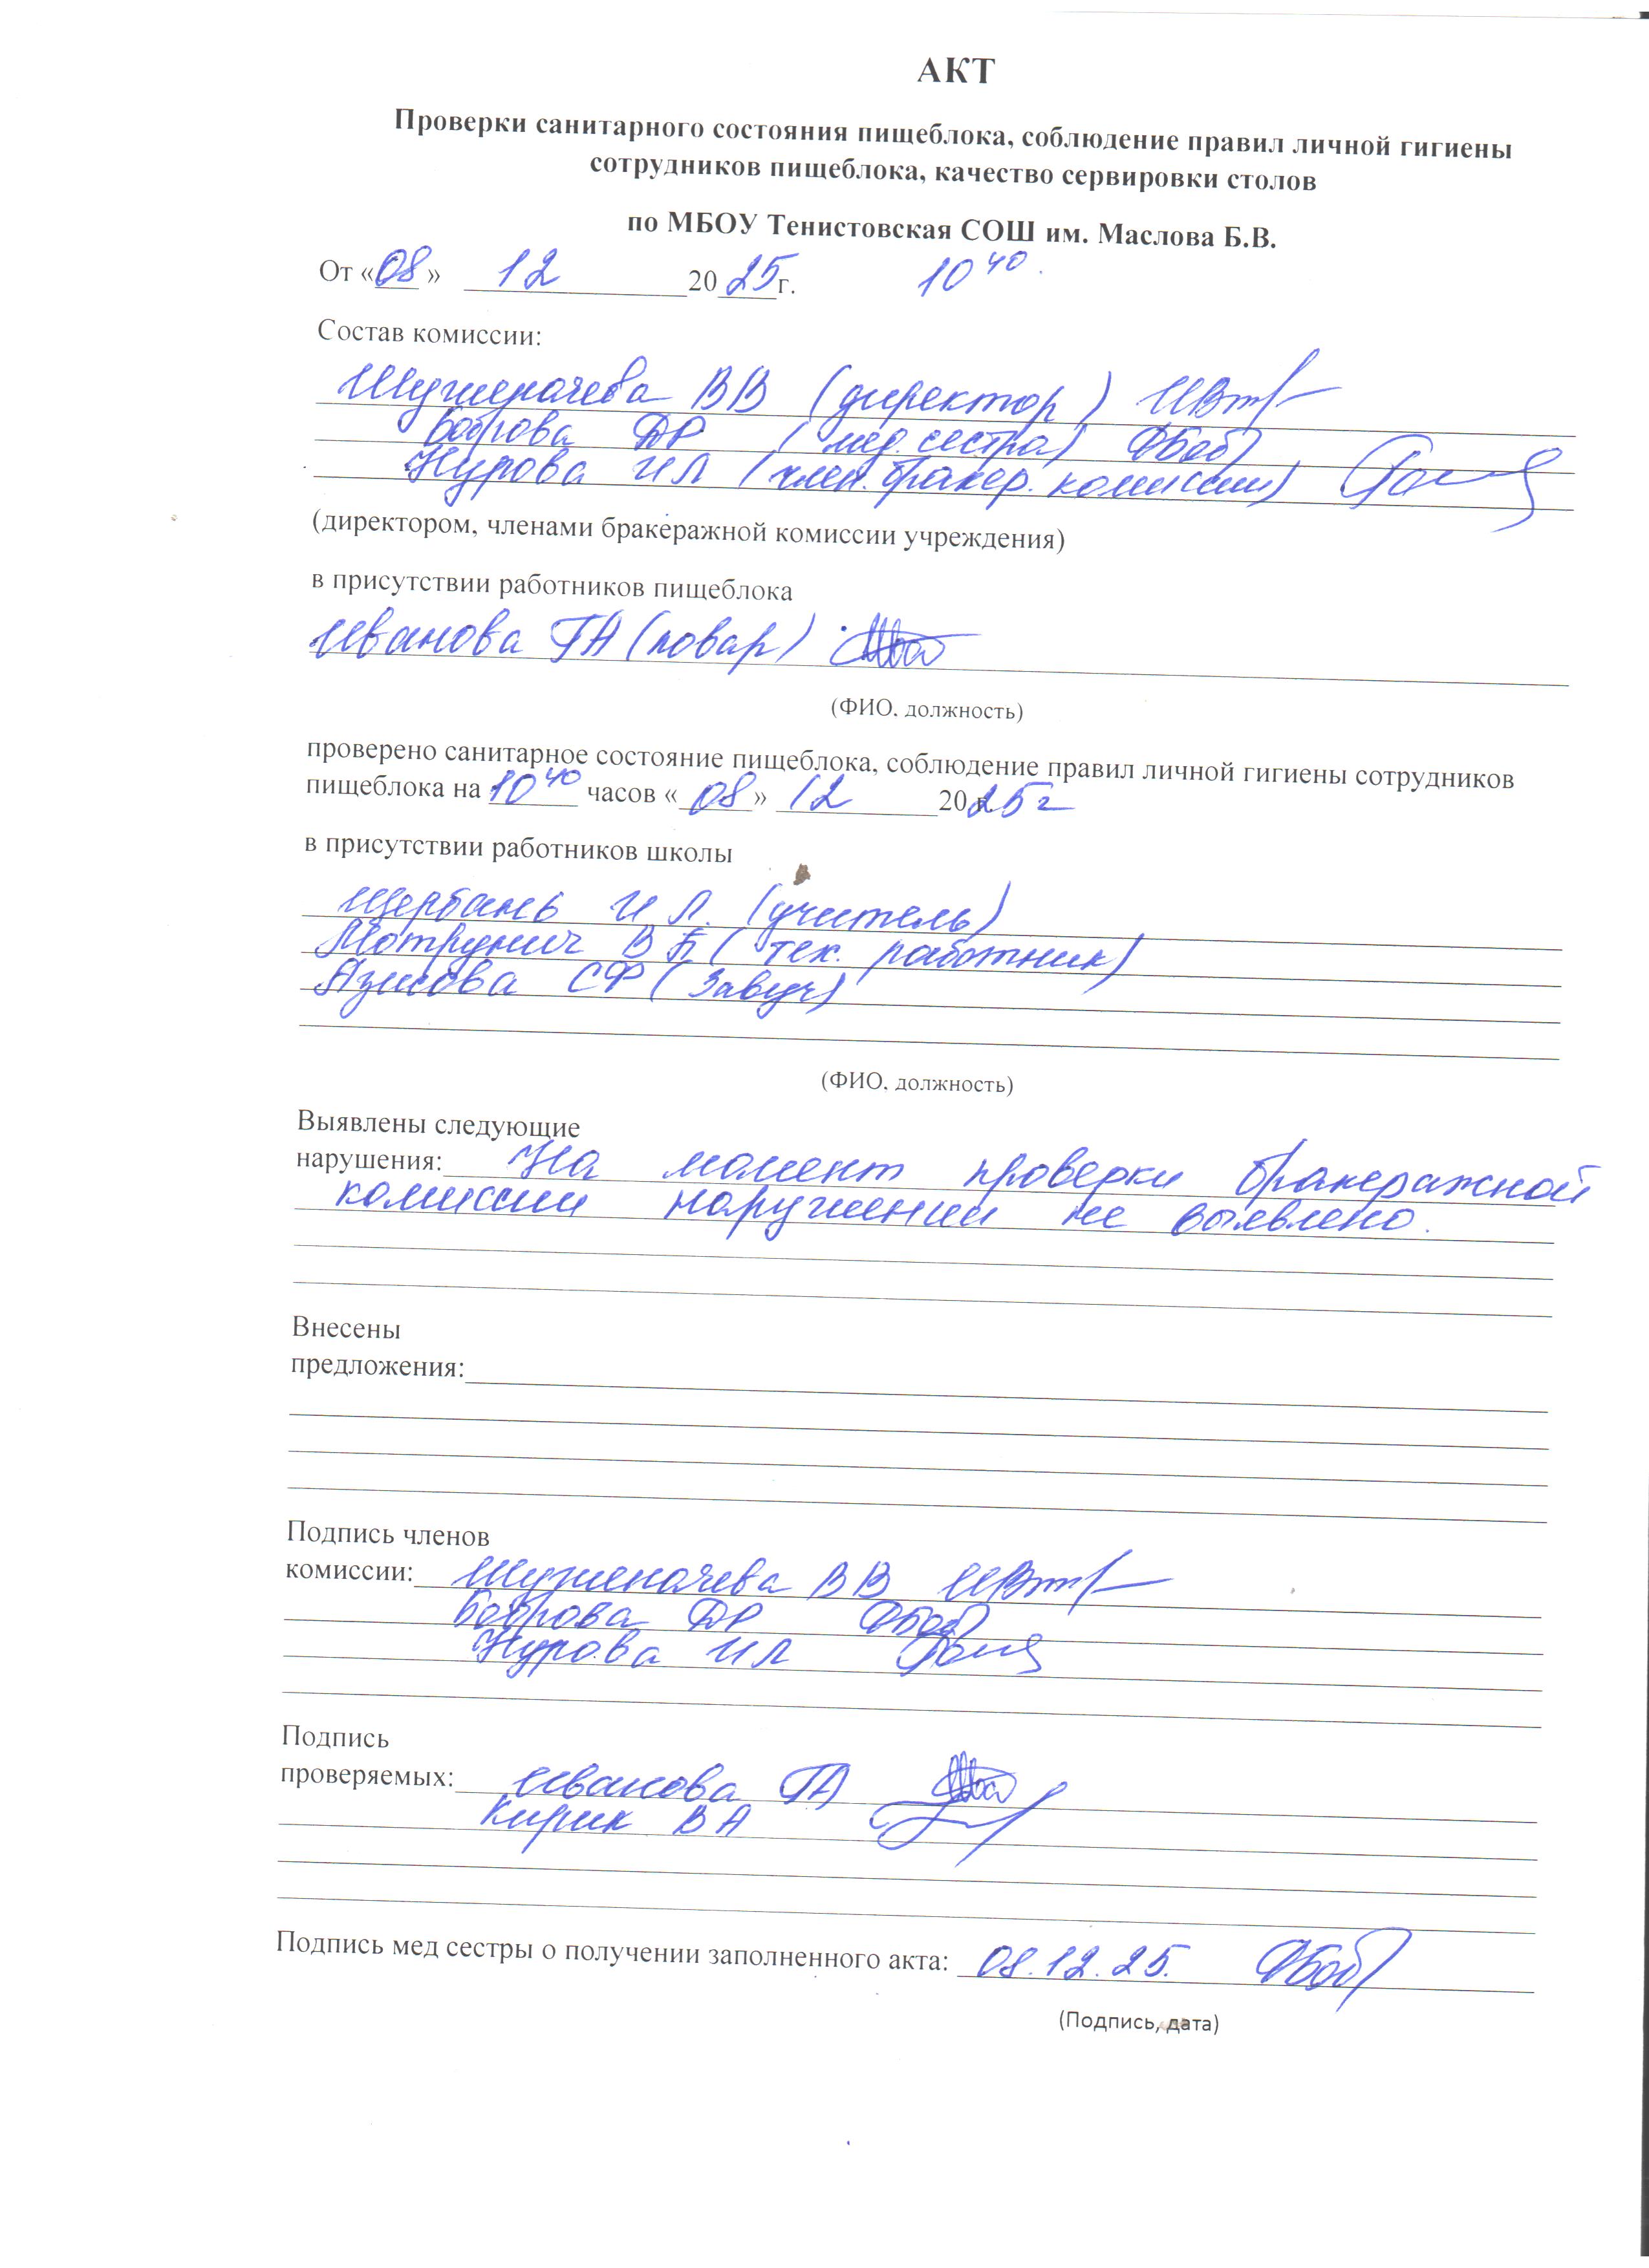 АКТ
Проверки санитарного состояния пищеблока, соблюдение правил личной гигиены
сотрудников пищеблока, качество сервировки столов
по МБОУ Тенистовская СОШ им. Маслова Б.В.
От «08» 12 2025г. 10 40.
Состав комиссии:
ВВ (директор)
Боброва ДР (мед. сестра)
Нурова ИЛ (член. бракер. комиссии)
(директором, членами бракеражной комиссии учреждения)
в присутствии работников пищеблока
Иванова ГА (повар)
(ФИО, должность)
проверено санитарное состояние пищеблока, соблюдение правил личной гигиены сотрудников
пищеблока на 10 40 часов «08» 12 2025г
в присутствии работников школы
Щербань И Л. (учитель)
Мотрунич В Б (тех. работник)
Азисова СФ (Завуч)
(ФИО, должность)
Выявлены следующие
нарушения: На момент проверки бракеражной
комиссии нарушений не выявлено.
Внесены
предложения:
Подпись членов
комиссии: ВВ
Боброва ДР
Нурова ИЛ
Подпись
проверяемых: Иванова ГА
Кирик ВА
Подпись мед сестры о получении заполненного акта: 08.12.25.
(Подпись, дата)